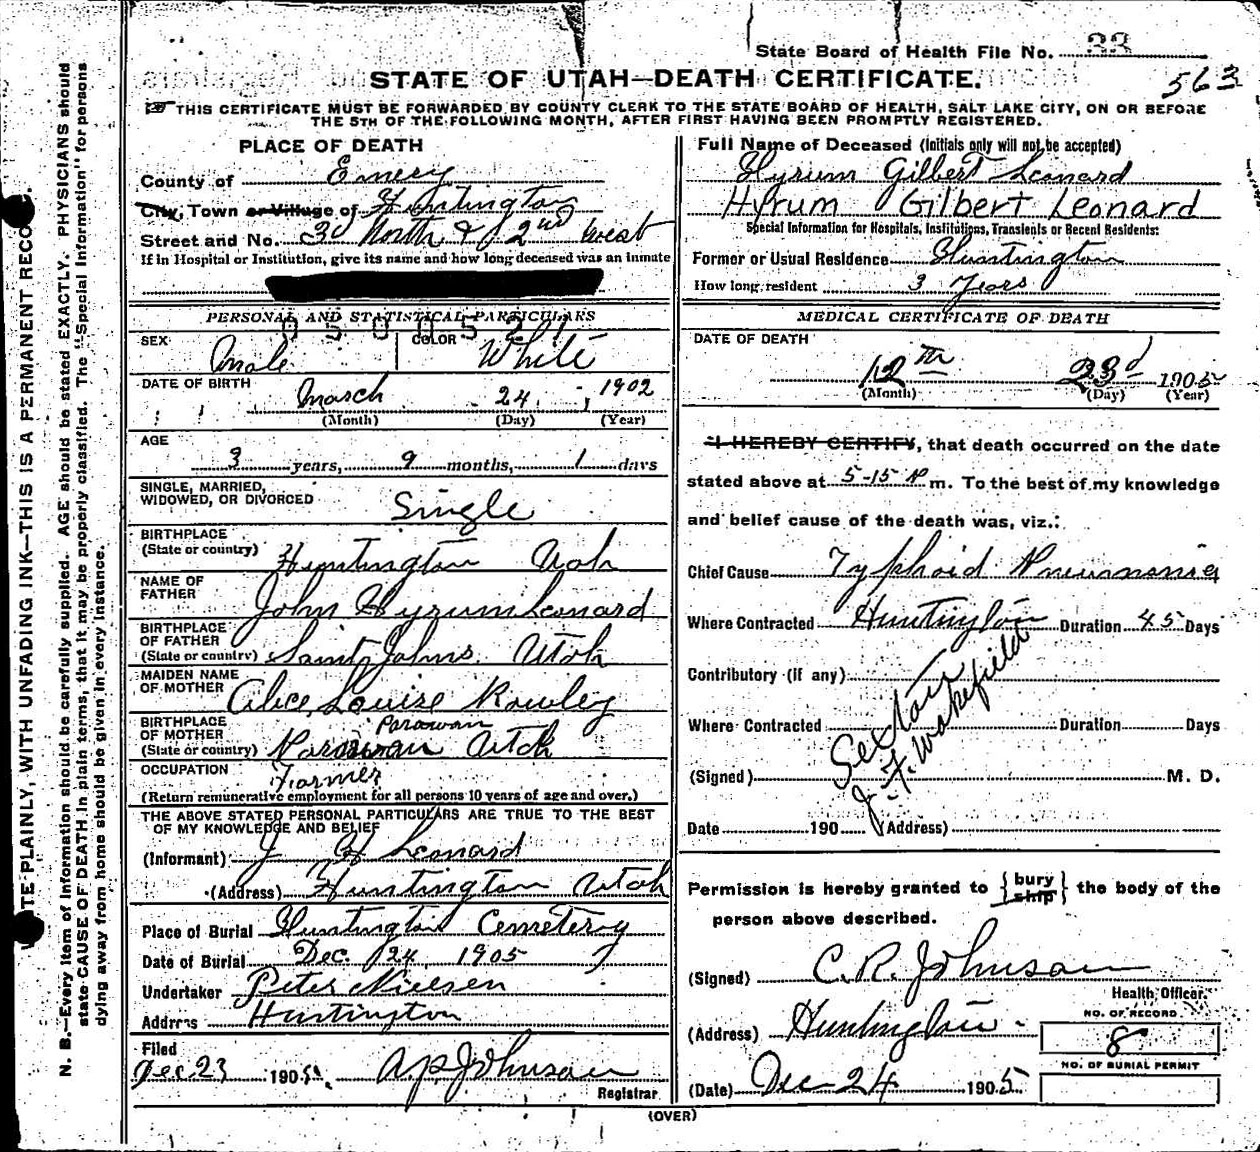 State Board of Health File No. 33
563
STATE OF UTAH—DEATH CERTIFICATE.
THIS CERTIFICATE MUST BE FORWARDED BY COUNTY CLERK TO THE STATE BOARD OF HEALTH, SALT LAKE CITY, ON OR BEFORE
THE 5TH OF THE FOLLOWING MONTH, AFTER FIRST HAVING BEEN PROMPTLY REGISTERED.
PLACE OF DEATH
County of Emery
City, Town or Village of Huntington
Street and No. 3d North & 2nd West
If in Hospital or Institution, give its name and how long deceased was an inmate
PERSONAL AND STATISTICAL PARTICULARS
SEX Male COLOR White
DATE OF BIRTH March 24, 1902
(Month) (Day) (Year)
AGE
3 years, 9 months, 1 days
SINGLE, MARRIED,
WIDOWED, OR DIVORCED Single
BIRTHPLACE
(State or country) Huntington Utah
NAME OF
FATHER John Hyrum Leonard
BIRTHPLACE
OF FATHER
(State or country) Saint Johns. Utah
MAIDEN NAME
OF MOTHER Alice Louise Rowley
BIRTHPLACE
OF MOTHER Parowan
(State or country) Parowan Utah
OCCUPATION Farmer
(Return remunerative employment for all persons 10 years of age and over.)
THE ABOVE STATED PERSONAL PARTICULARS ARE TRUE TO THE BEST
OF MY KNOWLEDGE AND BELIEF
(Informant) J H Leonard
(Address) Huntington Utah
Place of Burial Huntington Cemetery
Date of Burial Dec. 24, 1905
Undertaker Peter Nielsen
Address Huntington
Filed
Dec 23 1905. A P Johnson
Registrar
Full Name of Deceased (Initials only will not be accepted)
Hyrum Gilbert Leonard
Hyrum Gilbert Leonard
Special Information for Hospitals, Institutions, Transients or Recent Residents:
Former or Usual Residence Huntington
How long resident 3 Years
MEDICAL CERTIFICATE OF DEATH
DATE OF DEATH
12th 23d 1905
(Month) (Day) (Year)
I HEREBY CERTIFY, that death occurred on the date
stated above at 5-15 P m. To the best of my knowledge
and belief cause of the death was, viz.:
Chief Cause Typhoid Pneumonia
Where Contracted Huntington Duration 45 Days
Contributory (if any)
Where Contracted Duration Days
(Signed) M. D.
Sexton
J. F. Wakefield
Date 190 (Address)
Permission is hereby granted to { bury ship } the body of the
person above described.
(Signed) C. R. Johnson
Health Officer.
(Address) Huntington
NO. OF RECORD
8
NO. OF BURIAL PERMIT
(Date) Dec 24 1905
(OVER)
WITE PLAINLY, WITH UNFADING INK—THIS IS A PERMANENT RECO.
N. B.—Every item of information should be carefully supplied. AGE should be stated EXACTLY. PHYSICIANS should
state CAUSE OF DEATH in plain terms, that it may be properly classified. The "Special Information" for persons
dying away from home should be given in every instance.